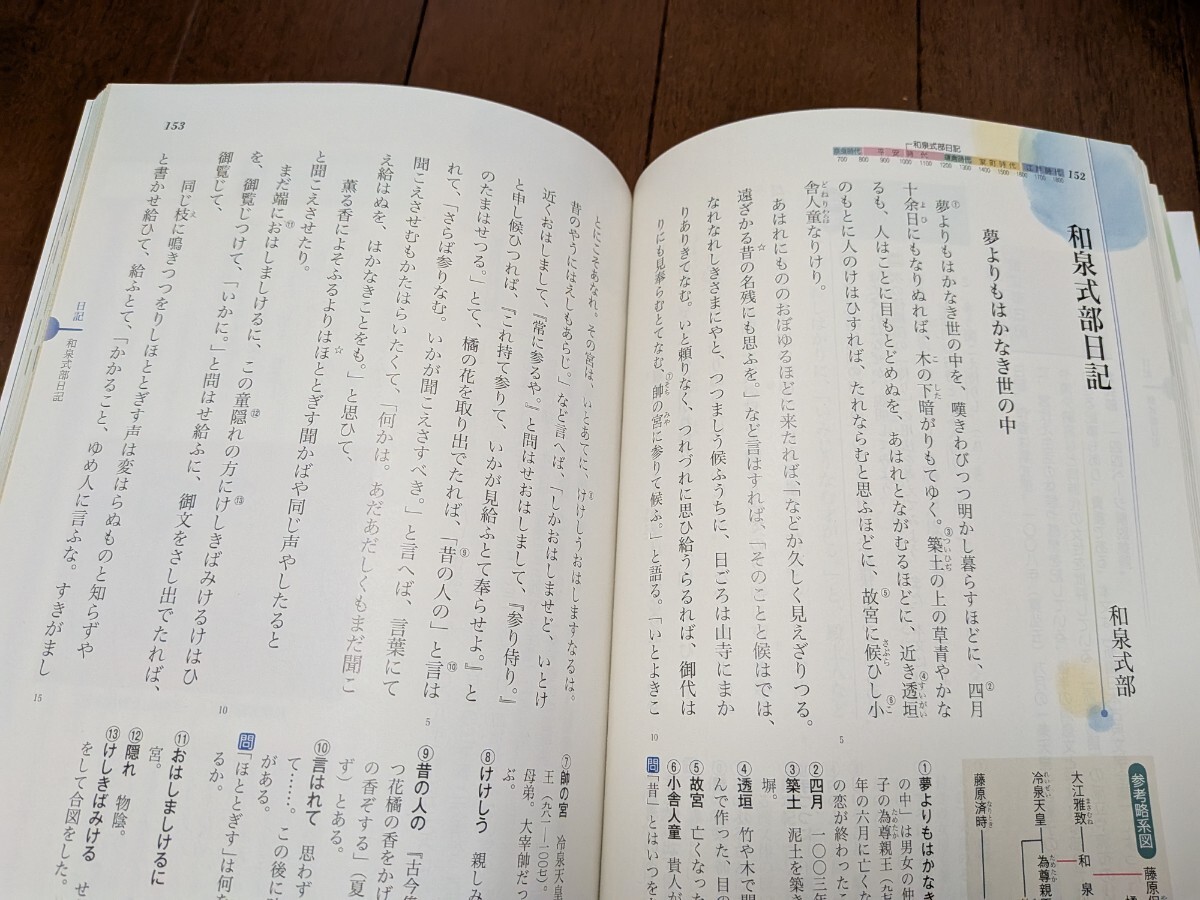 152
和泉式部日記
鎌倉時代 室町時代 江戸時代
700 800 900 1000 1100 1200 1300 1400 1500 1600 1700 1800
和泉式部日記
和泉式部
夢よりもはかなき世の中
夢よりもはかなき世の中を、嘆きわびつつ明かし暮らすほどに、四月
十余日にもなりぬれば、木の下暗がりもてゆく。築土の上の草青やかな
るも、人はことに目もとどめぬを、あはれとながむるほどに、近き透垣
のもとに人のけはひすれば、たれならむと思ふほどに、故宮に候ひし小
舎人童なりけり。
あはれにもののおぼゆるほどに来たれば、「などか久しく見えざりつる。
遠ざかる昔の名残にも思ふを。」など言はすれば、「そのことと候はでは、
なれなれしきさまにやと、つつましう候ふうちに、日ごろは山寺にまか
りありきてなむ。いと頼りなく、つれづれに思ひ給うらるれば、御代は
りにも見奉らむとてなむ、帥の宮に参りて候ふ。」と語る。「いとよきこ
5
10
参考略系図
大江雅致
冷泉天皇
藤原済時
和泉
為尊親
①夢よりもはかなき
の中」は男女の仲
子の為尊親王（九七
年の六月に亡くな
の恋が終わったこ
②四月 一〇〇三年
③築土 泥土を築き
塀。
④透垣 竹や木で間
んで作った、目の
⑤故宮 亡くなった
⑥小舎人童 貴人が
問「昔」とはいつを
153
とにこそあなれ。その宮は、いとあてに、けけしうおはしますなるは。
昔のやうにはえしもあらじ。」など言へば、「しかおはしませど、いとけ
近くおはしまして、『常に参るや。』と問はせおはしまして、『参り侍り。』
と申し候ひつれば、『これ持て参りて、いかが見給ふとて奉らせよ。』と
のたまはせつる。」とて、橘の花を取り出でたれば、「昔の人の」と言は
れて、「さらば参りなむ。いかが聞こえさすべき。」と言へば、言葉にて
聞こえさせむもかたはらいたくて、「何かは。あだあだしくもまだ聞こ
え給はぬを、はかなきことをも。」と思ひて、
薫る香によそふるよりはほととぎす聞かばや同じ声やしたると
と聞こえさせたり。
まだ端におはしましけるに、この童隠れの方にけしきばみけるけはひ
を、御覧じつけて、「いかに。」と問はせ給ふに、御文をさし出でたれば、
御覧じて、
同じ枝に鳴きつつをりしほととぎす声は変はらぬものと知らずや
と書かせ給ひて、給ふとて、「かかること、ゆめ人に言ふな。すきがまし
5
10
15
日記 和泉式部日記
⑦帥の宮 冷泉天皇
王（九八一―一〇〇七）。
母弟。大宰帥だっ
ぶ。
⑧けけしう 親しみ
⑨昔の人の 『古今
つ花橘の香をかげ
の香ぞする」（夏
ず）とある。
⑩言はれて 思わず
て……。この後に
がある。
問「ほととぎす」は何を
るか。
⑪おはしましけるに
宮。
⑫隠れ 物陰。
⑬けしきばみける せ
をして合図をした。